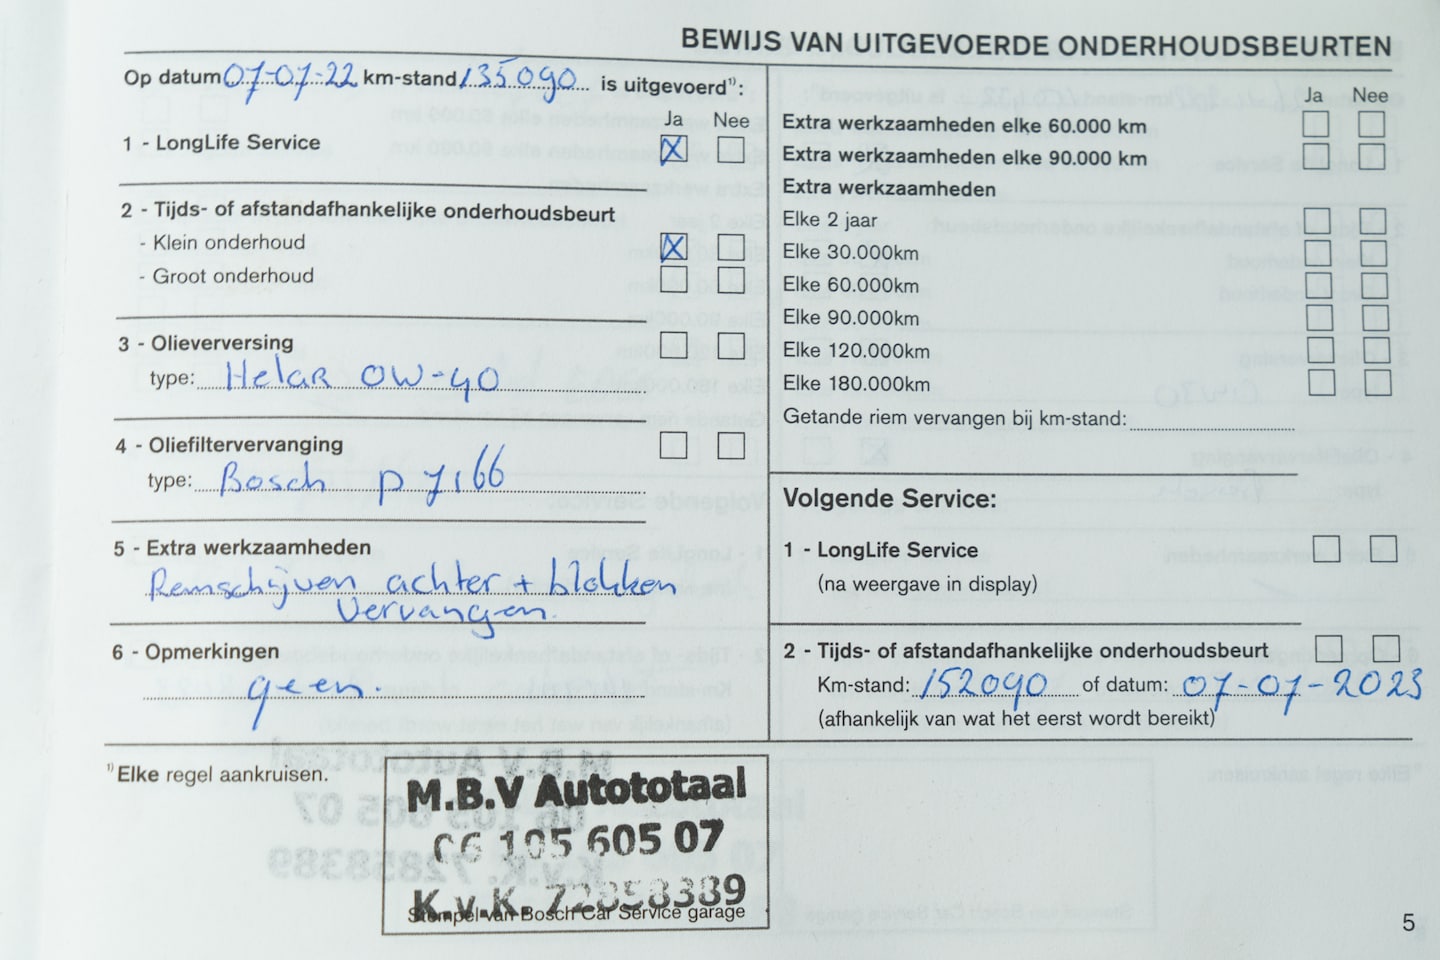 BEWIJS VAN UITGEVOERDE ONDERHOUDSBEURTEN
Op datum 07-07-22 km-stand 135090 is uitgevoerd¹⁾:
Ja Nee
1 - LongLife Service
2 - Tijds- of afstandafhankelijke onderhoudsbeurt
- Klein onderhoud
- Groot onderhoud
3 - Olieverversing
type: Helar 0W-40
4 - Oliefiltervervanging
type: Bosch P 7166
5 - Extra werkzaamheden
Remschijven achter + blokken
vervangen.
6 - Opmerkingen
geen.
¹⁾Elke regel aankruisen.
M.B.V Autototaal
06 105 605 07
K.v.K. 72858389
Stempel van Bosch Car Service garage
Ja Nee
Extra werkzaamheden elke 60.000 km
Extra werkzaamheden elke 90.000 km
Extra werkzaamheden
Elke 2 jaar
Elke 30.000km
Elke 60.000km
Elke 90.000km
Elke 120.000km
Elke 180.000km
Getande riem vervangen bij km-stand:
Volgende Service:
1 - LongLife Service
(na weergave in display)
2 - Tijds- of afstandafhankelijke onderhoudsbeurt
Km-stand: 152090 of datum: 07-07-2023
(afhankelijk van wat het eerst wordt bereikt)
5